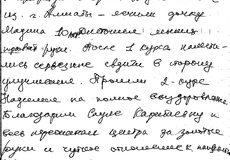 из г. Алматы – лечим дочку
Мадина 10
правая рука. После 1 курса
лись серьезные сдвиги в сторону
улучшения. Прошли 2 курс
Надеемся на полное выздоровление
Благодарим Сауле Каратаевну и
весь персонал центра за золотые
руки и чуткое отношение к